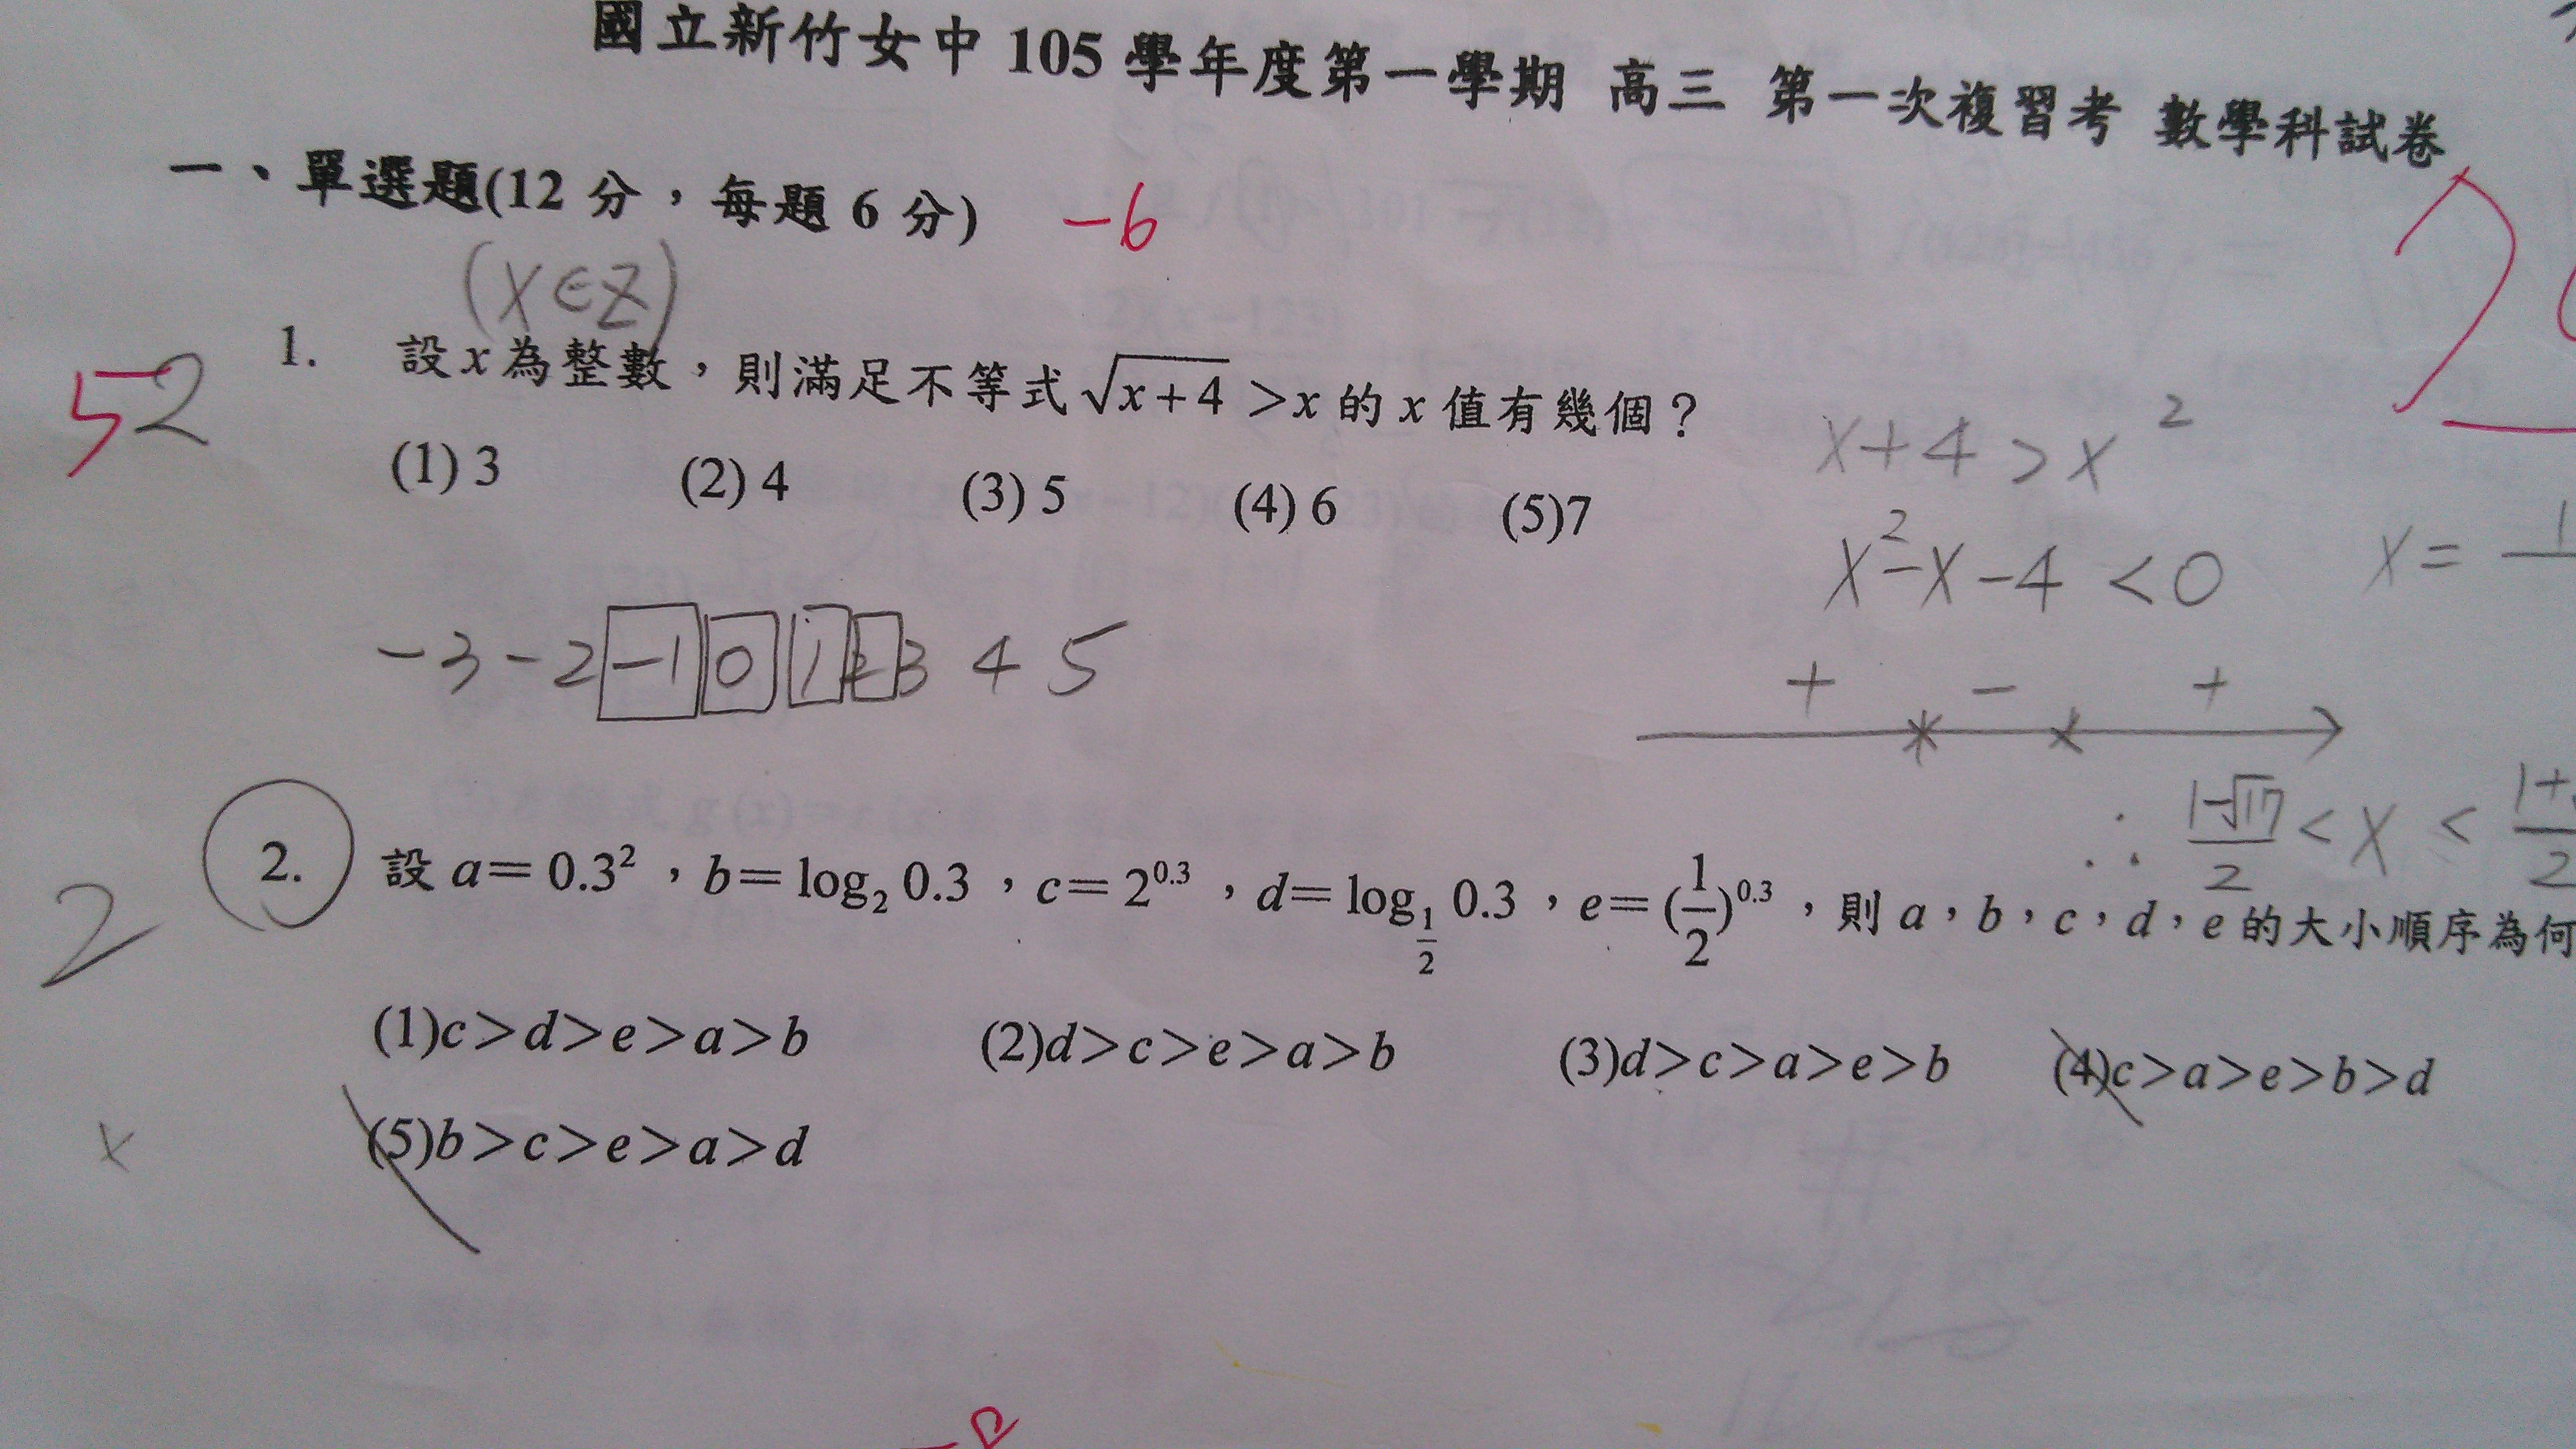 國立新竹女中 105 學年度第一學期 高三 第一次複習考 數學科試卷
一、單選題(12 分，每題 6 分) -6
(x∈Z)
52
1. 設 x 為整數，則滿足不等式 √(x+4) >x 的 x 值有幾個？
(1) 3 (2) 4 (3) 5 (4) 6 (5)7
x+4 > x²
x²-x-4 < 0
x = 1
-3 -2 -1 0 1 2 3 4 5
+ - +
∴ (1-√17)/2 < x <
2
2. 設 a＝0.3²，b＝log₂ 0.3，c＝2^0.3，d＝log_(1/2) 0.3，e＝(1/2)^0.3，則 a，b，c，d，e 的大小順序為何
(1)c＞d＞e＞a＞b (2)d＞c＞e＞a＞b (3)d＞c＞a＞e＞b (4)c＞a＞e＞b＞d
(5)b＞c＞e＞a＞d
x